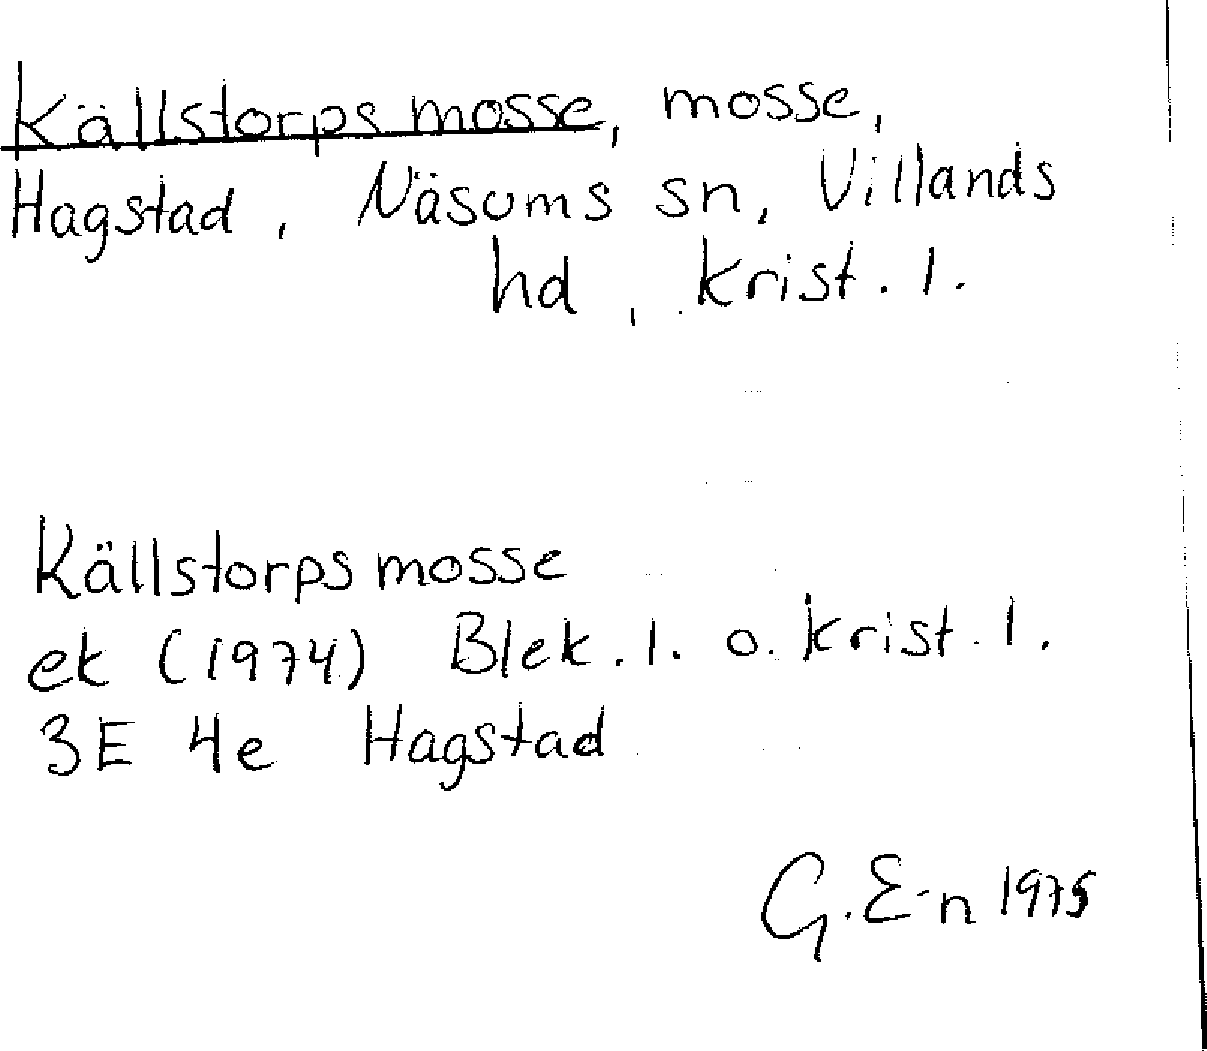 Källstorps mosse, mosse,
Hagstad, Näsums sn, Villands
hd, Krist. l.
Källstorps mosse
ek (1974) Blek. l. o. Krist. l.
3E 4e Hagstad
G. E-n 1975